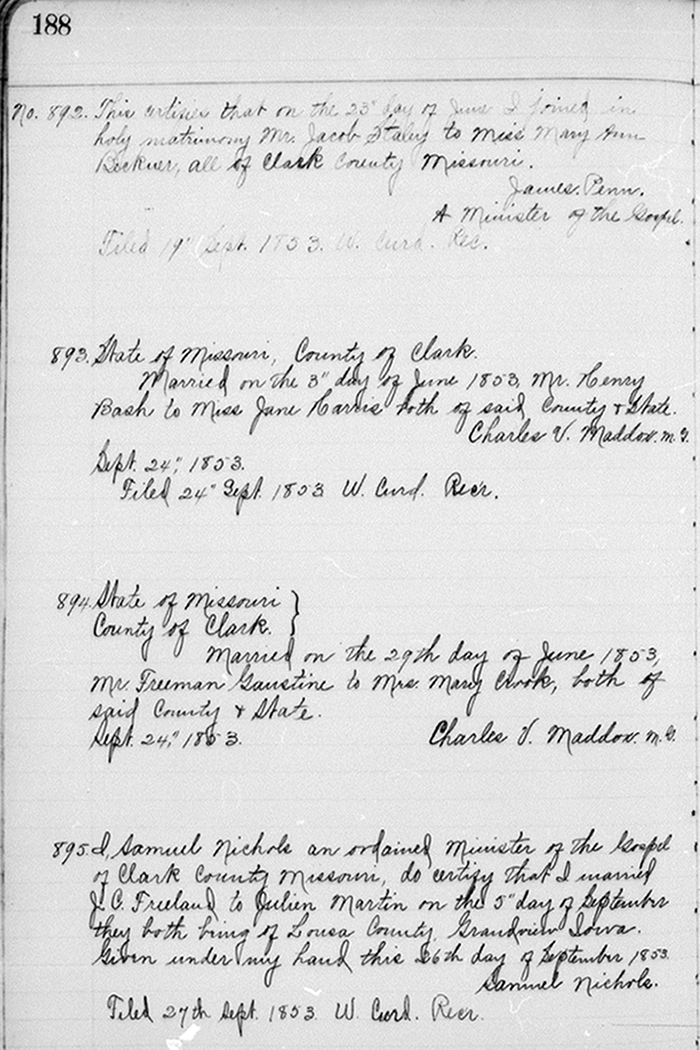 188
No. 892. This certifies that on the 23" day of June I joined in
holy matrimony Mr. Jacob Staley to Miss Mary Ann
Beckner, all of Clark County Missouri.
James. Penn.
A Minister of the Gospel.
Filed 19" Sept. 1853. W. Curd. Rec.
893. State of Missouri, County of Clark.
Married on the 3" day of June 1853, Mr. Henry
Bash to Miss Jane Harris both of said County & State.
Charles V. Maddox. M.G.
Sept. 24", 1853.
Filed 24" Sept. 1853 W. Curd. Recr.
894. State of Missouri }
County of Clark.
Married on the 29th day of June 1853,
Mr. Freeman Gaustine to Mrs. Mary Crook, both of
said County & State.
Sept. 24", 1853. Charles V. Maddox. M.G.
895. I, Samuel Nichols an ordained Minister of the Gospel
of Clark County Missouri, do certify that I married
J. C. Freeland to Julien Martin on the 5" day of September
they both being of Lousa County, Grandview Iowa.
Given under my hand this 26th day of September 1853.
Samuel Nichols.
Filed 27th Sept. 1853. W. Curd. Recr.